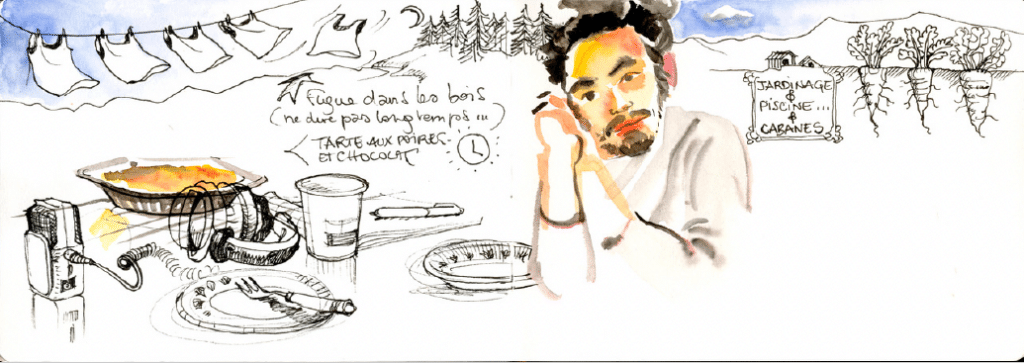 Fugue dans les bois
(ne dure pas longtemps...)
TARTE AUX POIRES
ET CHOCOLAT
JARDINAGE
&
PISCINE...
&
CABANES